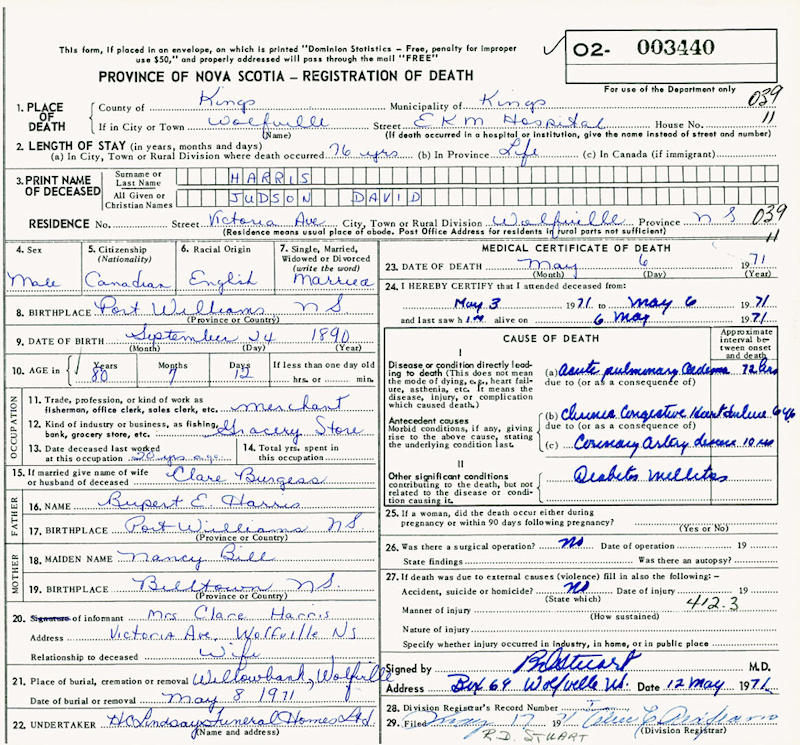 This form, if placed in an envelope, on which is printed "Dominion Statistics – Free, penalty for improper
use $50," and properly addressed will pass through the mail "FREE"
O2- 003440
PROVINCE OF NOVA SCOTIA – REGISTRATION OF DEATH
For use of the Department only
039
11
1. PLACE OF DEATH County of Kings Municipality of Kings
If in City or Town Wolfville Street EKM Hospital House No.
(Name) (If death occurred in a hospital or institution, give the name instead of street and number)
2. LENGTH OF STAY (in years, months and days)
(a) In City, Town or Rural Division where death occurred 76 yrs (b) In Province Life (c) In Canada (if immigrant)
3. PRINT NAME OF DECEASED Surname or Last Name HARRIS
All Given or Christian Names JUDSON DAVID
RESIDENCE No. Street Victoria Ave City, Town or Rural Division Wolfville Province N S 039
(Residence means usual place of abode. Post Office Address for residents in rural parts not sufficient) 11
4. Sex Male
5. Citizenship (Nationality) Canadian
6. Racial Origin English
7. Single, Married, Widowed or Divorced (write the word) Married
8. BIRTHPLACE Port Williams N S
(Province or Country)
9. DATE OF BIRTH September 24 1890
(Month) (Day) (Year)
10. AGE in Years 80 Months 7 Days 12 If less than one day old hrs. or min.
OCCUPATION
11. Trade, profession, or kind of work as fisherman, office clerk, sales clerk, etc. Merchant
12. Kind of industry or business, as fishing, bank, grocery store, etc. Grocery Store
13. Date deceased last worked at this occupation 20 yrs ago
14. Total yrs. spent in this occupation
15. If married give name of wife or husband of deceased Clare Burgess
FATHER
16. NAME Rupert E Harris
17. BIRTHPLACE Port Williams N S
(Province or Country)
MOTHER
18. MAIDEN NAME Nancy Bill
19. BIRTHPLACE Billtown N S.
(Province or Country)
20. Signature of informant Mrs Clare Harris
Address Victoria Ave, Wolfville NS
Relationship to deceased Wife
21. Place of burial, cremation or removal Willowbank, Wolfville
Date of burial or removal May 8 1971
22. UNDERTAKER H C Lindsay Funeral Homes Ltd
(Name and address)
MEDICAL CERTIFICATE OF DEATH
23. DATE OF DEATH May 6 1971
(Month) (Day) (Year)
24. I HEREBY CERTIFY that I attended deceased from:
May 3 1971 to May 6 1971
and last saw him alive on 6 May 1971
CAUSE OF DEATH
Approximate interval between onset and death
I
Disease or condition directly leading to death (This does not mean the mode of dying, e.g., heart failure, asthenia, etc. It means the disease, injury, or complication which caused death.)
(a) Acute pulmonary oedema 72 hrs
due to (or as a consequence of)
Antecedent causes
Morbid conditions, if any, giving rise to the above cause, stating the underlying condition last.
(b) Chronic Congestive Heart failure
due to (or as a consequence of)
(c) Coronary Artery disease 10 yrs
II
Other significant conditions contributing to the death, but not related to the disease or condition causing it.
Diabetes Mellitus
25. If a woman, did the death occur either during pregnancy or within 90 days following pregnancy?
(Yes or No)
26. Was there a surgical operation? No Date of operation 19
State findings Was there an autopsy?
27. If death was due to external causes (violence) fill in also the following:–
Accident, suicide or homicide? No Date of injury 19
(State which) 412.3
Manner of injury
(How sustained)
Nature of injury
Specify whether injury occurred in industry, in home, or in public place
Signed by RDStuart M.D.
Address Box 69 Wolfville NS. Date 12 May 1971
28. Division Registrar's Record Number
29. Filed May 17 71
(Division Registrar)
R.D. STUART